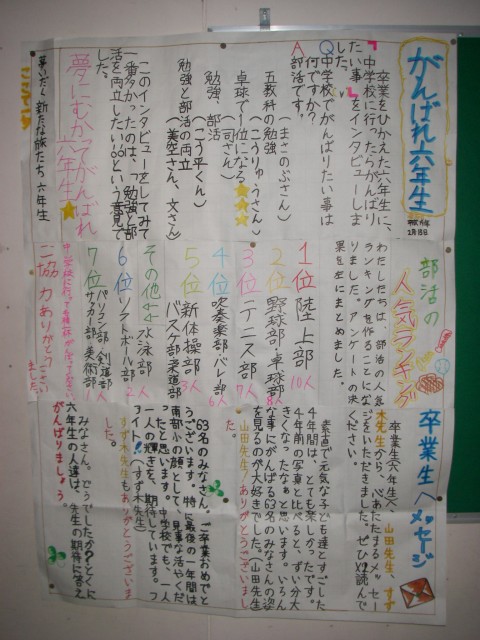 がんばれ六年生
卒業をひかえた六年生に、
中学校に行ったらがんばり
たい事」をインタビューしま
した。
Q中学校でがんばりたい事は
何ですか?
A部活です。
(まさのぶさん)
五教科の勉強
(こうりゅうさん)
卓球で1位になる
(司さん)
勉強、部活
(こう平くん)
勉強と部活の両立
(美空さん、文さん)
このインタビューをしてみて
一番多かったのは、「勉強と部
活を両立したい」という意見で
した。
夢にむかってがんばれ
六年生
争いだく新たな旅たち 六年生
部活の
人気ランキング
わたしたちは、部活の人気
ランキングを作ることにな
りました。アンケートの決
果を左にまとめました。
1位 陸上部 10人
2位 野球部・卓球部 8人
3位 テニス部 7人
4位 吹奏楽部・バレー部 6人
5位 新体操部 3人
バスケ部・柔道部
その他 水泳部
6位 ソフトボール部 2人
7位 パソコン部 剣道部
サッカー部 美術部 1人
ご協力ありがとうござい
ました
卒業生へメッセージ
卒業生(六年生)へ、山田先生、すず
木先生から、心あたたまるメッセー
ジをいただきました。ぜひ読んで
ください。
素直で元気な子ども達とすごした
4年間は、とても楽しかったです。
4年前の写真と比べると、ずい分大
きくなったなぁと思います。いろん
な事にがんばる63名のみなさんの姿
を見るのが大好きでした。(山田先生)
山田先生ありがとうございました。
63名のみなさん、ご卒業おめでと
うございます。特に最後の一年間は
南部小の顔として、見事な活やくだ
ったと思います。中学校でも、一人
一人の輝きを、期待しています。フ
ァイト!(すず木先生)
すず木先生もありがとうございま
した。
みなさん。どうでしたか?とくに
六年生の人達は、先生の期待に答え
がんばりましょう。